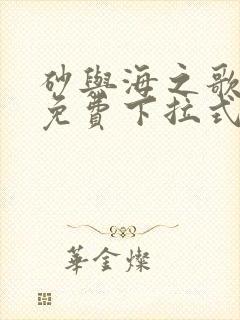 砂與海之歌
免費下拉式
華金燦